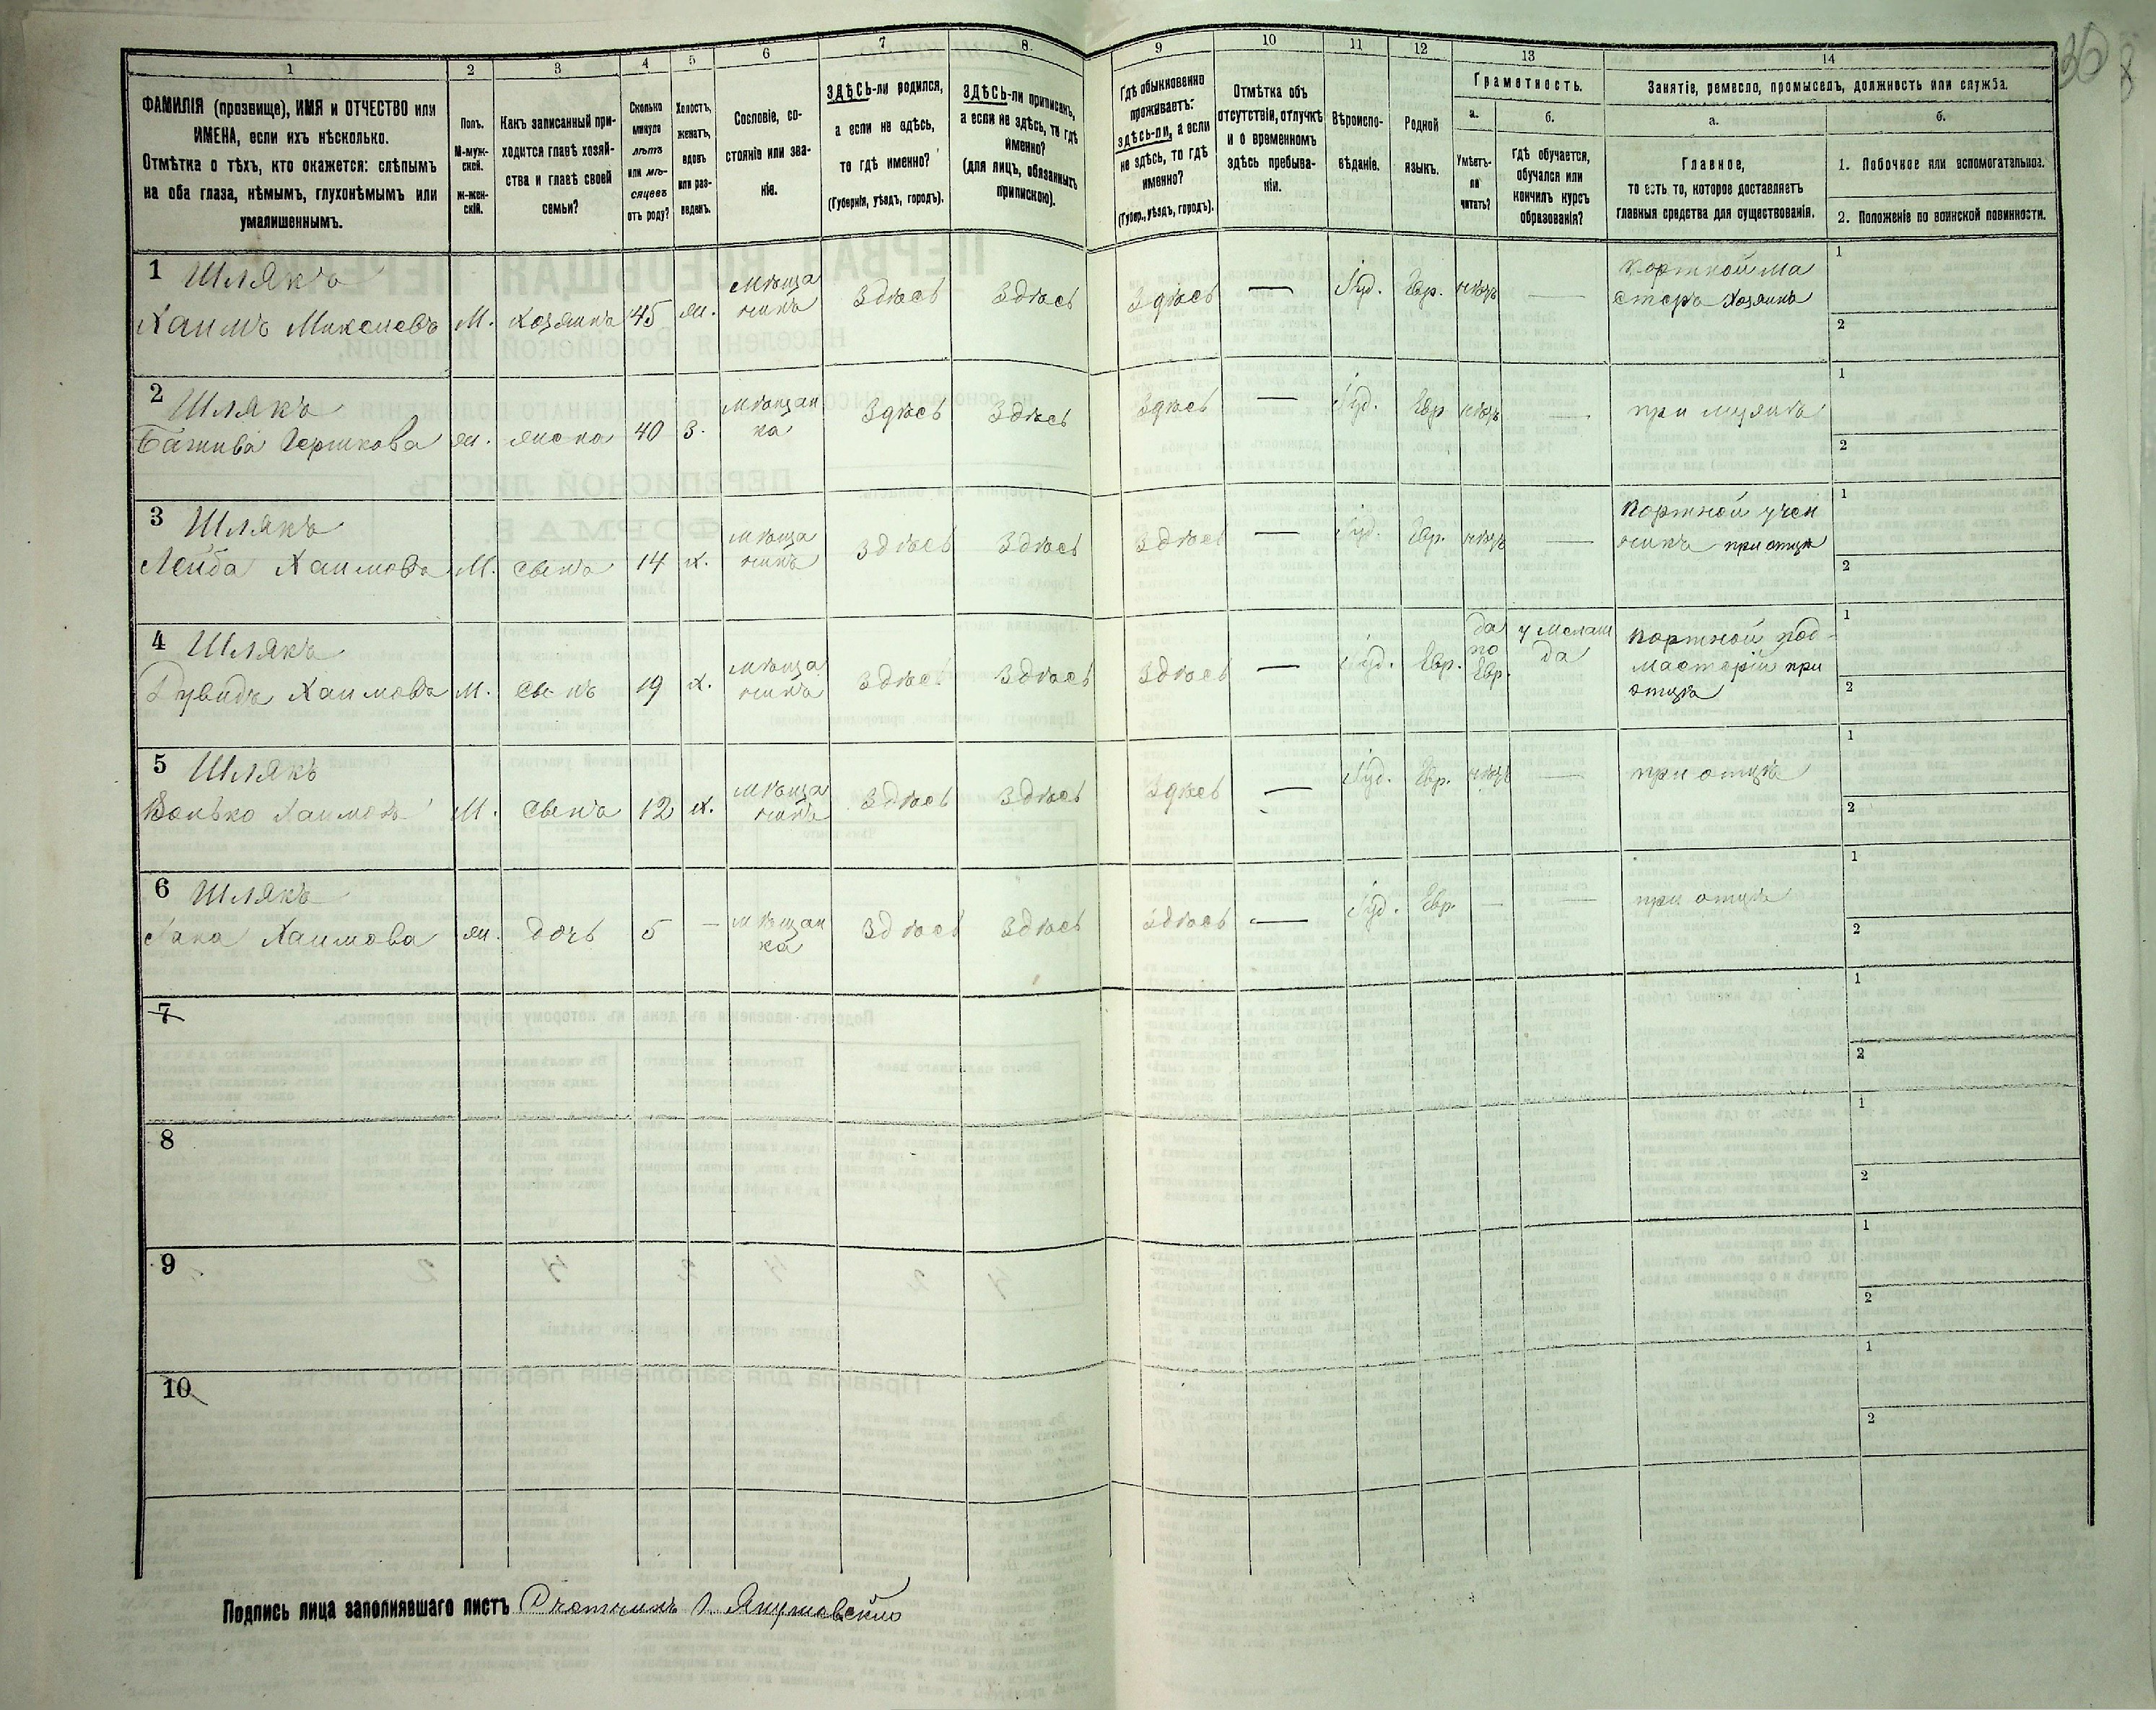 36
8
1 2 3 4 5 6 7 8. 9 10 11 12 13 14
ФАМИЛІЯ (прозвище), ИМЯ и ОТЧЕСТВО или
ИМЕНА, если ихъ нѣсколько.
Отмѣтка о тѣхъ, кто окажется: слѣпымъ
на оба глаза, нѣмымъ, глухонѣмымъ или
умалишеннымъ.
Полъ.
М-муж-
ской.
Ж-жен-
скій.
Какъ записанный при-
ходится главѣ хозяй-
ства и главѣ своей
семьи?
Сколько
минуло
лѣтъ
или мѣ-
сяцевъ
отъ роду?
Холостъ,
женатъ,
вдовъ
или раз-
веденъ.
Сословіе, со-
стояніе или зва-
ніе.
ЗДѢСЬ-ли родился,
а если не здѣсь,
то гдѣ именно?
(Губернія, уѣздъ, городъ).
ЗДѢСЬ-ли приписанъ,
а если не здѣсь, то гдѣ
именно?
(для лицъ, обязанныхъ
припискою).
Гдѣ обыкновенно
проживаетъ:
здѣсь-ли, а если
не здѣсь, то гдѣ
именно?
(Губер., уѣздъ, городъ).
Отмѣтка объ
отсутствіи, отлучкѣ
и о временномъ
здѣсь пребыва-
ніи.
Вѣроиспо-
вѣданіе.
Родной
языкъ.
Грамотность.
а.
Умѣетъ-
ли
читать?
б.
гдѣ обучается,
обучался или
кончилъ курсъ
образованія?
Занятіе, ремесло, промыселъ, должность или служба.
а.
Главное,
то есть то, которое доставляетъ
главныя средства для существованія.
б.
1. Побочное или вспомогательное.
2. Положеніе по воинской повинности.
1 Шлякъ
Хаимъ М. Хозяинъ 45 ж. Мѣща
нинъ Здѣсь Здѣсь Здѣсь — Іуд. Евр. нѣтъ —
Портной ма
стеръ хозяинъ
1
2
2 Шлякъ
Гершкова ж. жена 40 З. Мѣщан
ка Здѣсь Здѣсь Здѣсь — Іуд. Евр нѣтъ —
при мужѣ
1
2
3 Шлякъ
Лейба Хаимовъ М. Сынъ 14 х. Мѣща
нинъ Здѣсь Здѣсь Здѣсь — Іуд. Евр. нѣтъ —
Портной учен
никъ при отцѣ
1
2
4 Шлякъ
Дувидъ Хаимовъ М. Сынъ 19 х. Мѣща
нинъ Здѣсь Здѣсь Здѣсь — Іуд. Евр.
да
по
Евр.
у Мелам
да
Портной под-
мастерій при
отцѣ
1
2
5 Шлякъ
Хаимовъ М. Сынъ 12 х. Мѣща
нинъ Здѣсь Здѣсь Здѣсь — Іуд. Евр. нѣтъ —
при отцѣ
1
2
6 Шлякъ
Хаимова ж. дочь 5 — Мѣщан
ка Здѣсь Здѣсь Здѣсь — Іуд. Евр. — —
при отцѣ
1
2
7
1
2
8
1
2
9
1
2
10
1
2
Подпись лица заполнявшаго листъ Счетчикъ